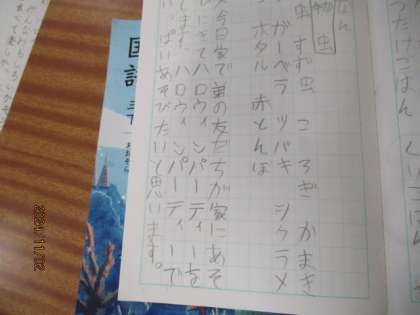 つたけごはん くり
なん
虫
虫 すず虫 こ ろぎ かまき
ガーベラ ツバキ シクラメ
ホタル 赤とんぼ
今日家で弟の友だちが家にあそ
にきてハロウィンパーティーを
します。ハロウィンパーティーで
いっぱいあそびたいと思います。
国語 三下
あおぞら